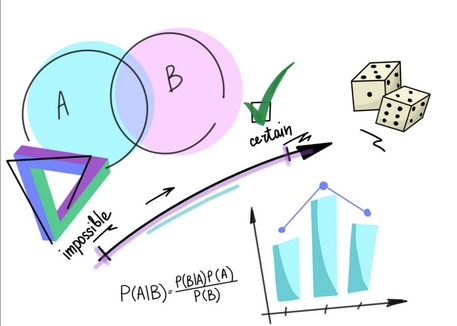 A
B
certain
impossible
P(A|B)=P(B|A)P(A)
P(B)